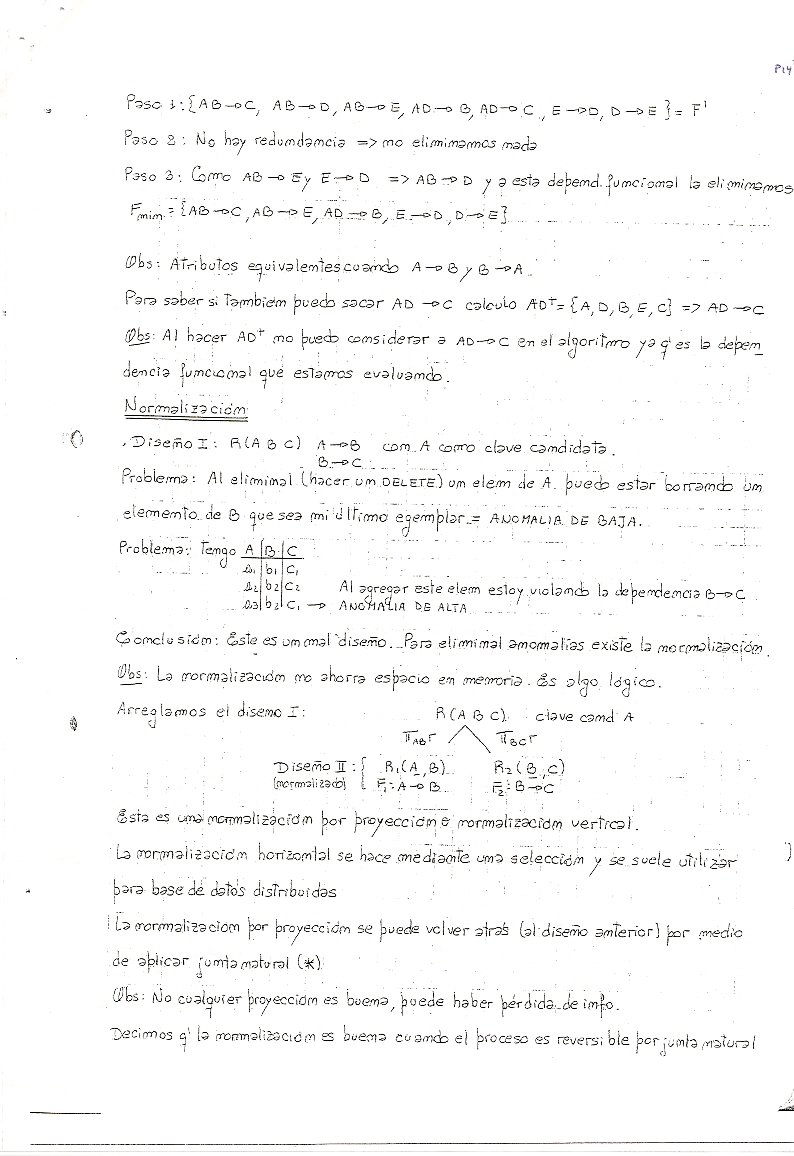 P14
Paso 1: {AB→C, AB→D, AB→E, AD→B, AD→C, E→D, D→E} = F'
Paso 2: No hay redundancia => no eliminamos nada
Paso 3: Como AB→E y E→D => AB→D y a esta depend. funcional la eliminamos
Fmin = {AB→C, AB→E, AD→B, E→D, D→E}
Obs: Atributos equivalentes cuando A→B y B→A.
Para saber si también puedo sacar AD→C calculo AD⁺ = {A, D, B, E, C} => AD→C
Obs: Al hacer AD⁺ no puedo considerar a AD→C en el algoritmo ya q' es la depen
dencia funcional que estamos evaluando.
Normalización
. Diseño I: R(A B C) A→B con A como clave candidata.
B→C
Problema: Al eliminal (hacer un DELETE) un elem de A. puedo estar borrando un
elemento de B que sea mi último egemplar = ANOMALIA DE BAJA.
Problema: Tengo A | B | C
a1 | b1 | C1
a2 | b2 | C2 Al agregar este elem estoy violando la dependencia B→C
a3 | b2 | C1 → ANOMALIA DE ALTA
Conclusión: Este es un mal diseño. Para eliminal anomalías existe la normalización.
Obs: La normalización no ahorra espacio en memoria. Es algo lógico.
Arreglamos el diseno I: R(A B C) clave cand A
πAB r πBC r
Diseño II: { R1(A, B) R2(B, C)
(normalizado) { F1: A→B F2: B→C
Esta es una normalización por proyección o normalización vertical.
La normalización horizontal se hace mediante una selección y se suele utilizar
para base de datos distribuidas
La normalización por proyección se puede volver atrás (al diseño anterior) por medio
de aplicar junta natural (*)
Obs: No cualquier proyección es buena, puede haber pérdida de info.
Decimos q' la normalización es buena cuando el proceso es reversible por junta natural